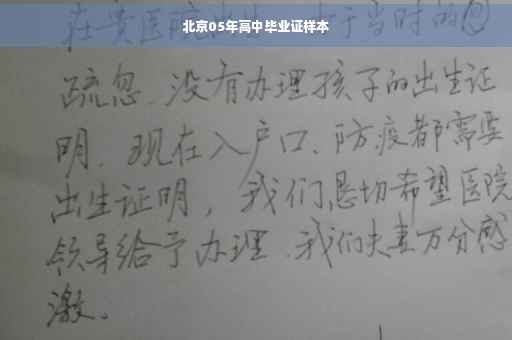 北京05年高中毕业证样本
在贵医院 于当时的
疏忽.没有办理孩子的出生证
明.现在入户口、防疫都需要
出生证明,我们恳切希望医院
领导给予办理.我们夫妻万分感
激。